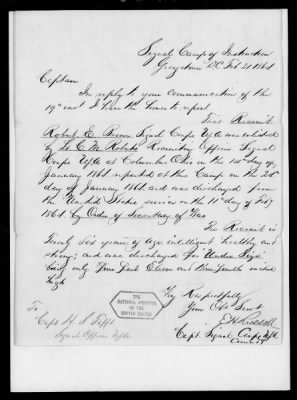 Signal Camp of Instruction
Georgetown DC Feb 21 1864
Captain
In reply to your communication of the
19th inst I have the honor to report
This Recruit
Robert E. Brown Signal Corps USA was enlisted
by Lt C M Roberts Recruiting Officer Signal
Corps USA at Columbus Ohio on the 14th day of
January 1864 reported at this Camp on the 20th
day of January 1864 and was discharged from
the United States service on the 11th day of Feby
1864 by Order of Secretary of War
The Recruit is
Twenty Six years of age intelligent healthy and
strong and was discharged for "Under Size"
being only Four feet Eleven and One fourth inches
high
Very Respectfully
Your Obt Servt
To
Capt H S Tafft
Signal Officer USA
THE
NATIONAL ARCHIVES
OF THE
UNITED STATES
Capt Signal Corps USA